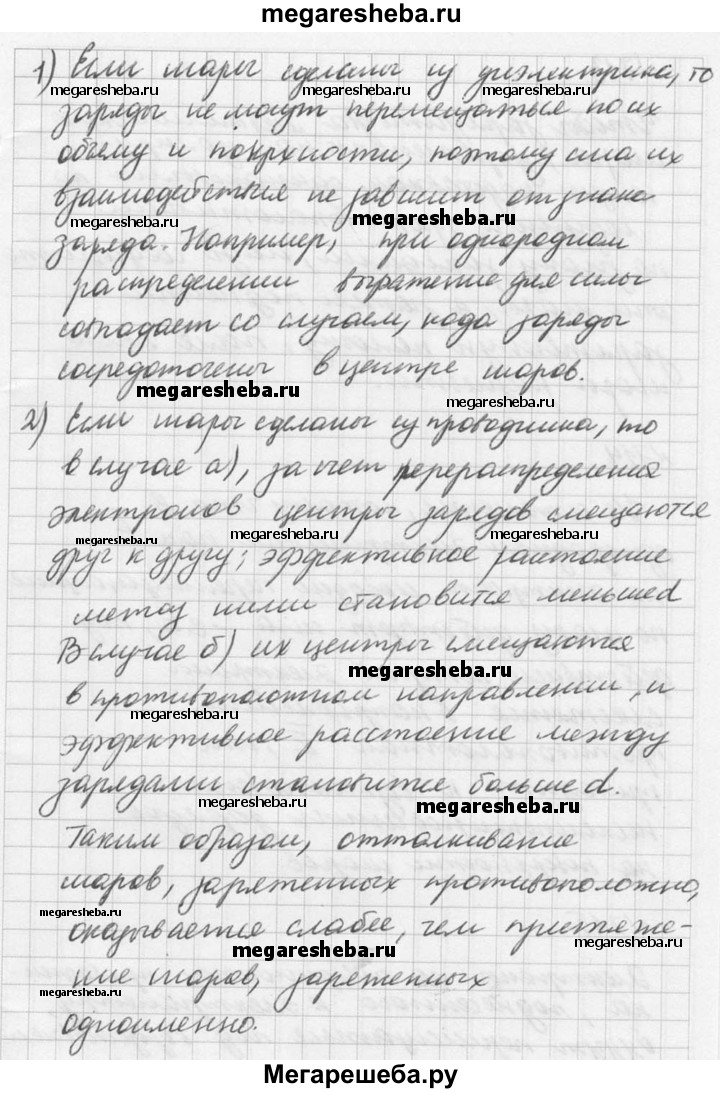 megaresheba.ru
1) Если шары сделаны из диэлектрика, то
megaresheba.ru megaresheba.ru megaresheba.ru
заряды не могут перемещаться по их
объему и поверхности, поэтому сила их
взаимодействия не зависит от знака
megaresheba.ru megaresheba.ru
заряда. Например, при однородном
распределении выражение для силы
совпадает со случаем, когда заряды
сосредоточены в центре шаров.
megaresheba.ru megaresheba.ru
2) Если шары сделаны из проводника, то
в случае а), за счет перераспределения
электронов центры зарядов смещаются
megaresheba.ru megaresheba.ru megaresheba.ru
друг к другу; эффективное расстояние
между ними становится меньше d
В случае б) их центры смещаются
megaresheba.ru
в противоположном направлении, и
megaresheba.ru
эффективное расстояние между
зарядами становится больше d.
megaresheba.ru megaresheba.ru
Таким образом, отталкивание
шаров, заряженных противоположно,
megaresheba.ru
оказывается слабее, чем притяже-
megaresheba.ru megaresheba.ru
ние шаров, заряженных
megaresheba.ru
одноименно.
megaresheba.ru megaresheba.ru
Мегарешеба.ру